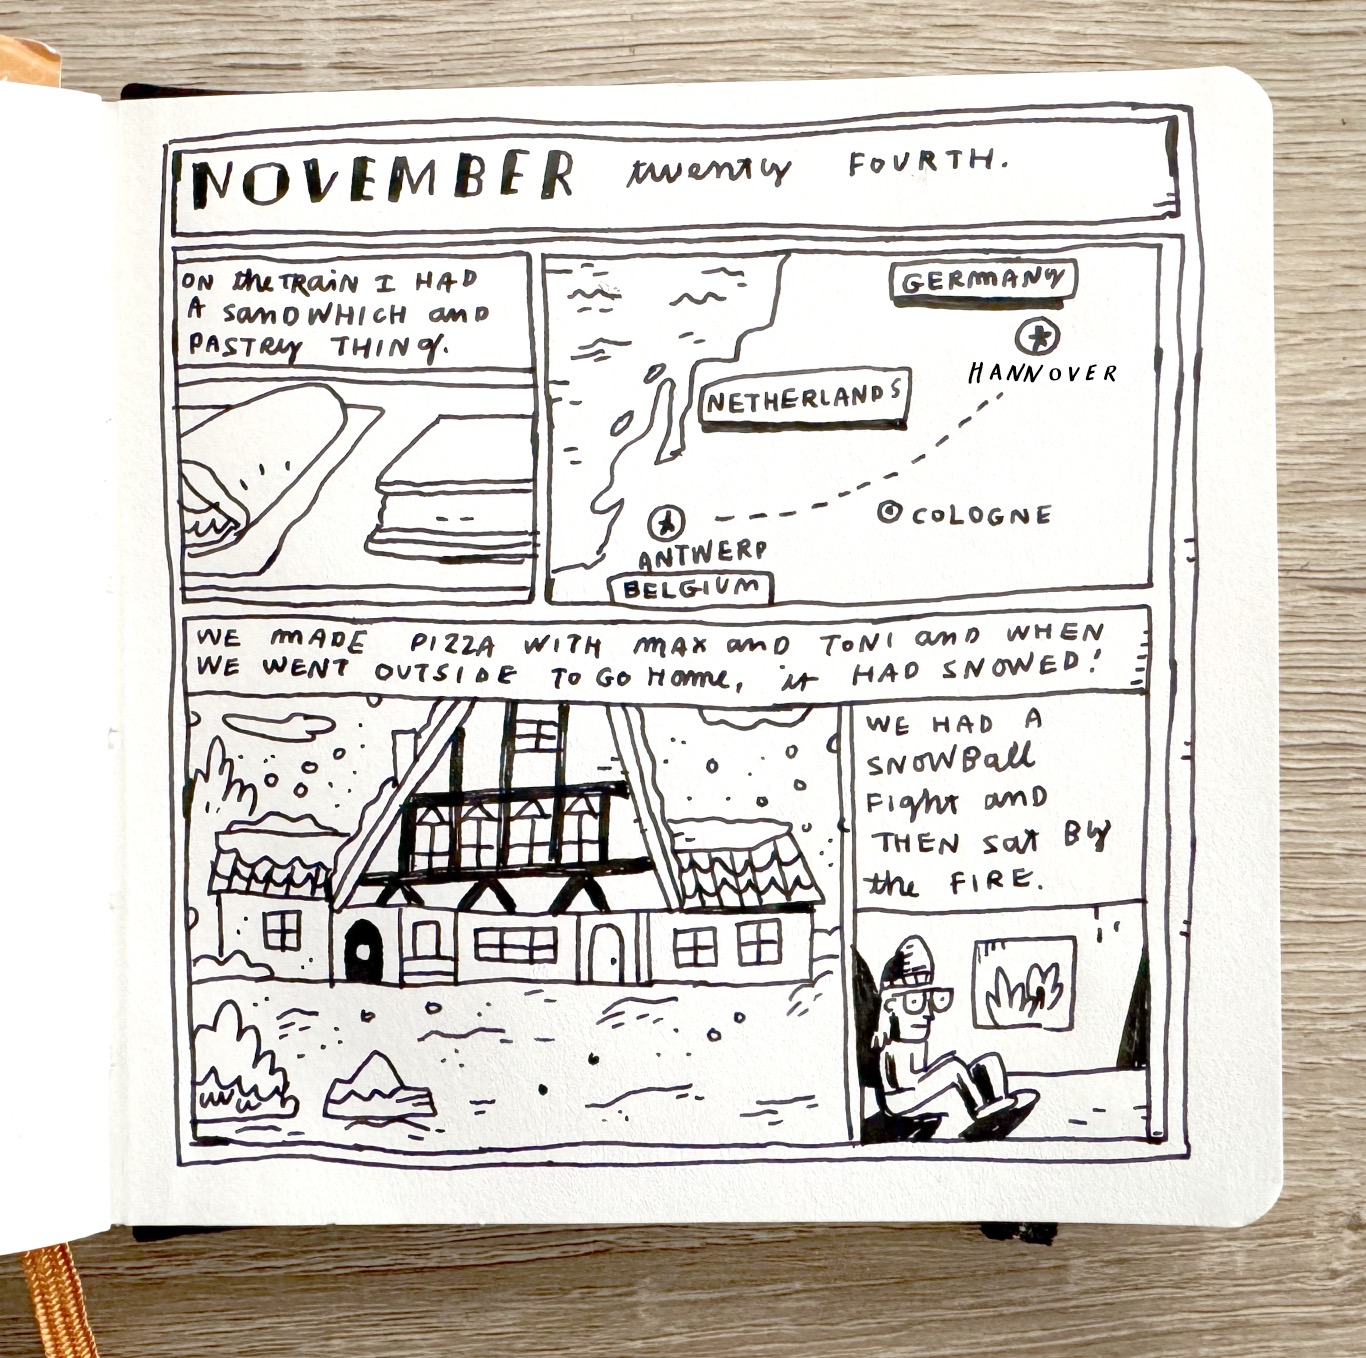 NOVEMBER twenty FOURTH.
ON the TRAIN I HAD
A SANDWHICH and
PASTRY THING.
GERMANY
HANNOVER
NETHERLANDS
COLOGNE
ANTWERP
BELGIUM
WE MADE PIZZA WITH MAX and TONI and WHEN
WE WENT OUTSIDE TO GO HOME, it HAD SNOWED!
WE HAD A
SNOWBALL
FIGHT and
THEN sat BY
the FIRE.